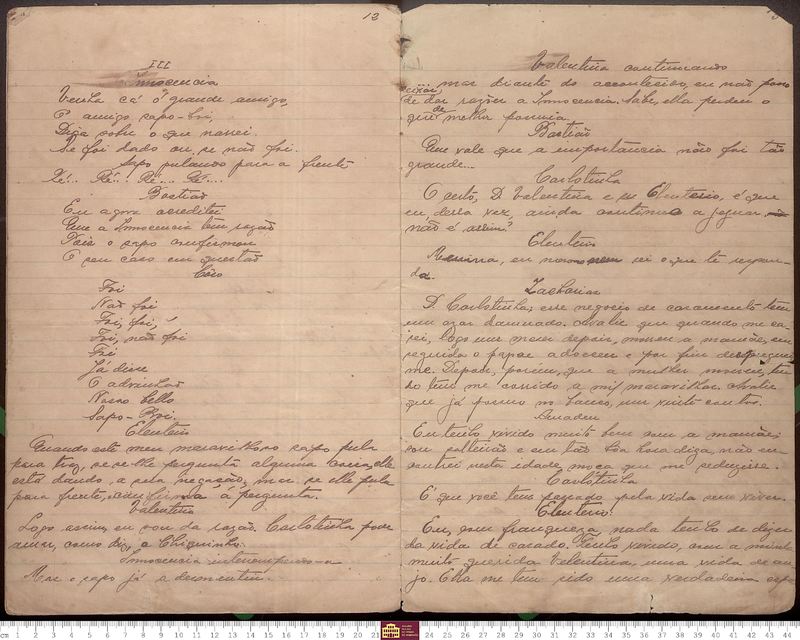 12
III
Innocencia
Venha cá ó grande amigo,
O amigo sapo-boi,
Diga sobre o que narrei.
Se foi dado ou se não foi.
Sapo pulando para a frente
Ré... Ré... Ré... Ré....
Bastião
Eu agora acreditei
Que a Innocencia tem razão
Pois o sapo confirmou
O seu caso em questão
Côro
Foi
Não foi
Foi, foi,
Foi, não foi
Foi
Já disse
O adivinhão
Nosso bello
Sapo-Boi.
Eleuterio
Quando este meu maravilhoso sapo pula
para traz, se se lhe pergunta alguma coisa, elle
está dando, a sua negação, mas se elle pula
para frente, confirma á pergunta.
Valentina
Logo assim, eu sou da razão. Carlotinha pode
amar, como diz, o Chiquinho.
Innocencia interrompendo-a
Mas o sapo já a desmentiu.
Valentina continuando
mas diante do acontecido, eu não posso
deixar de dar razões a Innocencia. Sabe, ella perdeu o
que de melhor possuia.
Bastião
Que vale que a importancia não foi tão
grande...
Carlotinha
O certo, D. Valentina e se Eleuterio, é que
eu, dessa vez, ainda continuo a jejuar,
não é assim?
Eleuterio
Menina, eu não sei o que te respon-
da.
Zacharias
D. Carlotinha, esse negocio de casamento tem
um azar damnado. Avalie que quando me ca-
sei, logo um mez depois, morreu a mamãe, em
seguida o papae adoeceu e por fim
me. Depois, porém, que a mulher morreu, te-
nho tem me corrido a mil maravilhas. Avalie
que já possuo no banco, uns vinte contos.
Amadeu
Eu tenho vivido muito bem com a mamãe;
sou solteirão e em tão boa hora diga, não en-
contrei nesta idade, moça que me seduzisse.
Carlotinha
É que você tem passado pela vida sem viver.
Eleuterio
Eu, com franqueza, nada tenho se dizer
da vida de casado. Tenho vivido, com a minha
muito querida Valentina, uma vida de an-
jo. Ella me tem sido uma verdadeira esp